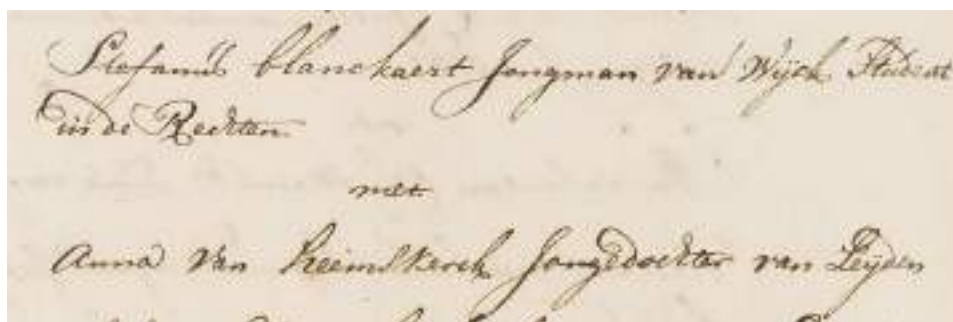 Stefanus blanckaert Jongman van Wijck Student
in de Rechten
met
Anna van heemskerck Jongedochter van Leijden